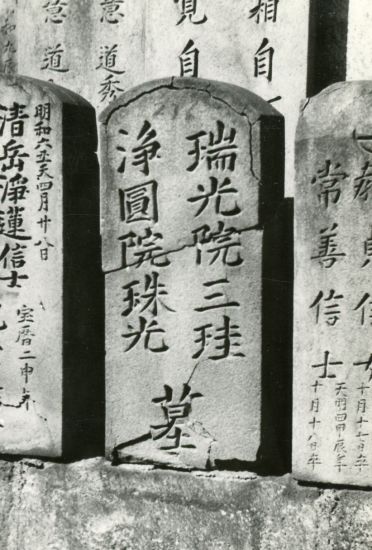 相自
覚自
慈道秀
慈道
貞信女
十月十七日
常善信士
天明四甲辰年
十月十八日卒
瑞光院三珪
浄圓院珠光
墓
明和六五天四月廿八日
清岳浄蓮信士
宝暦二申年